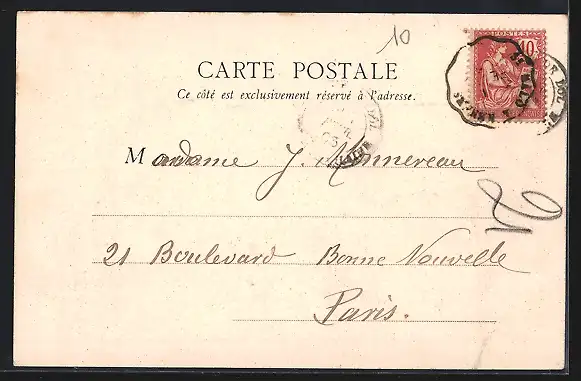 10
POSTES
10
CARTE POSTALE
Ce côté est exclusivement réservé à l'adresse.
Madame J. Monnereau
21 Boulevard Bonne Nouvelle
Paris.